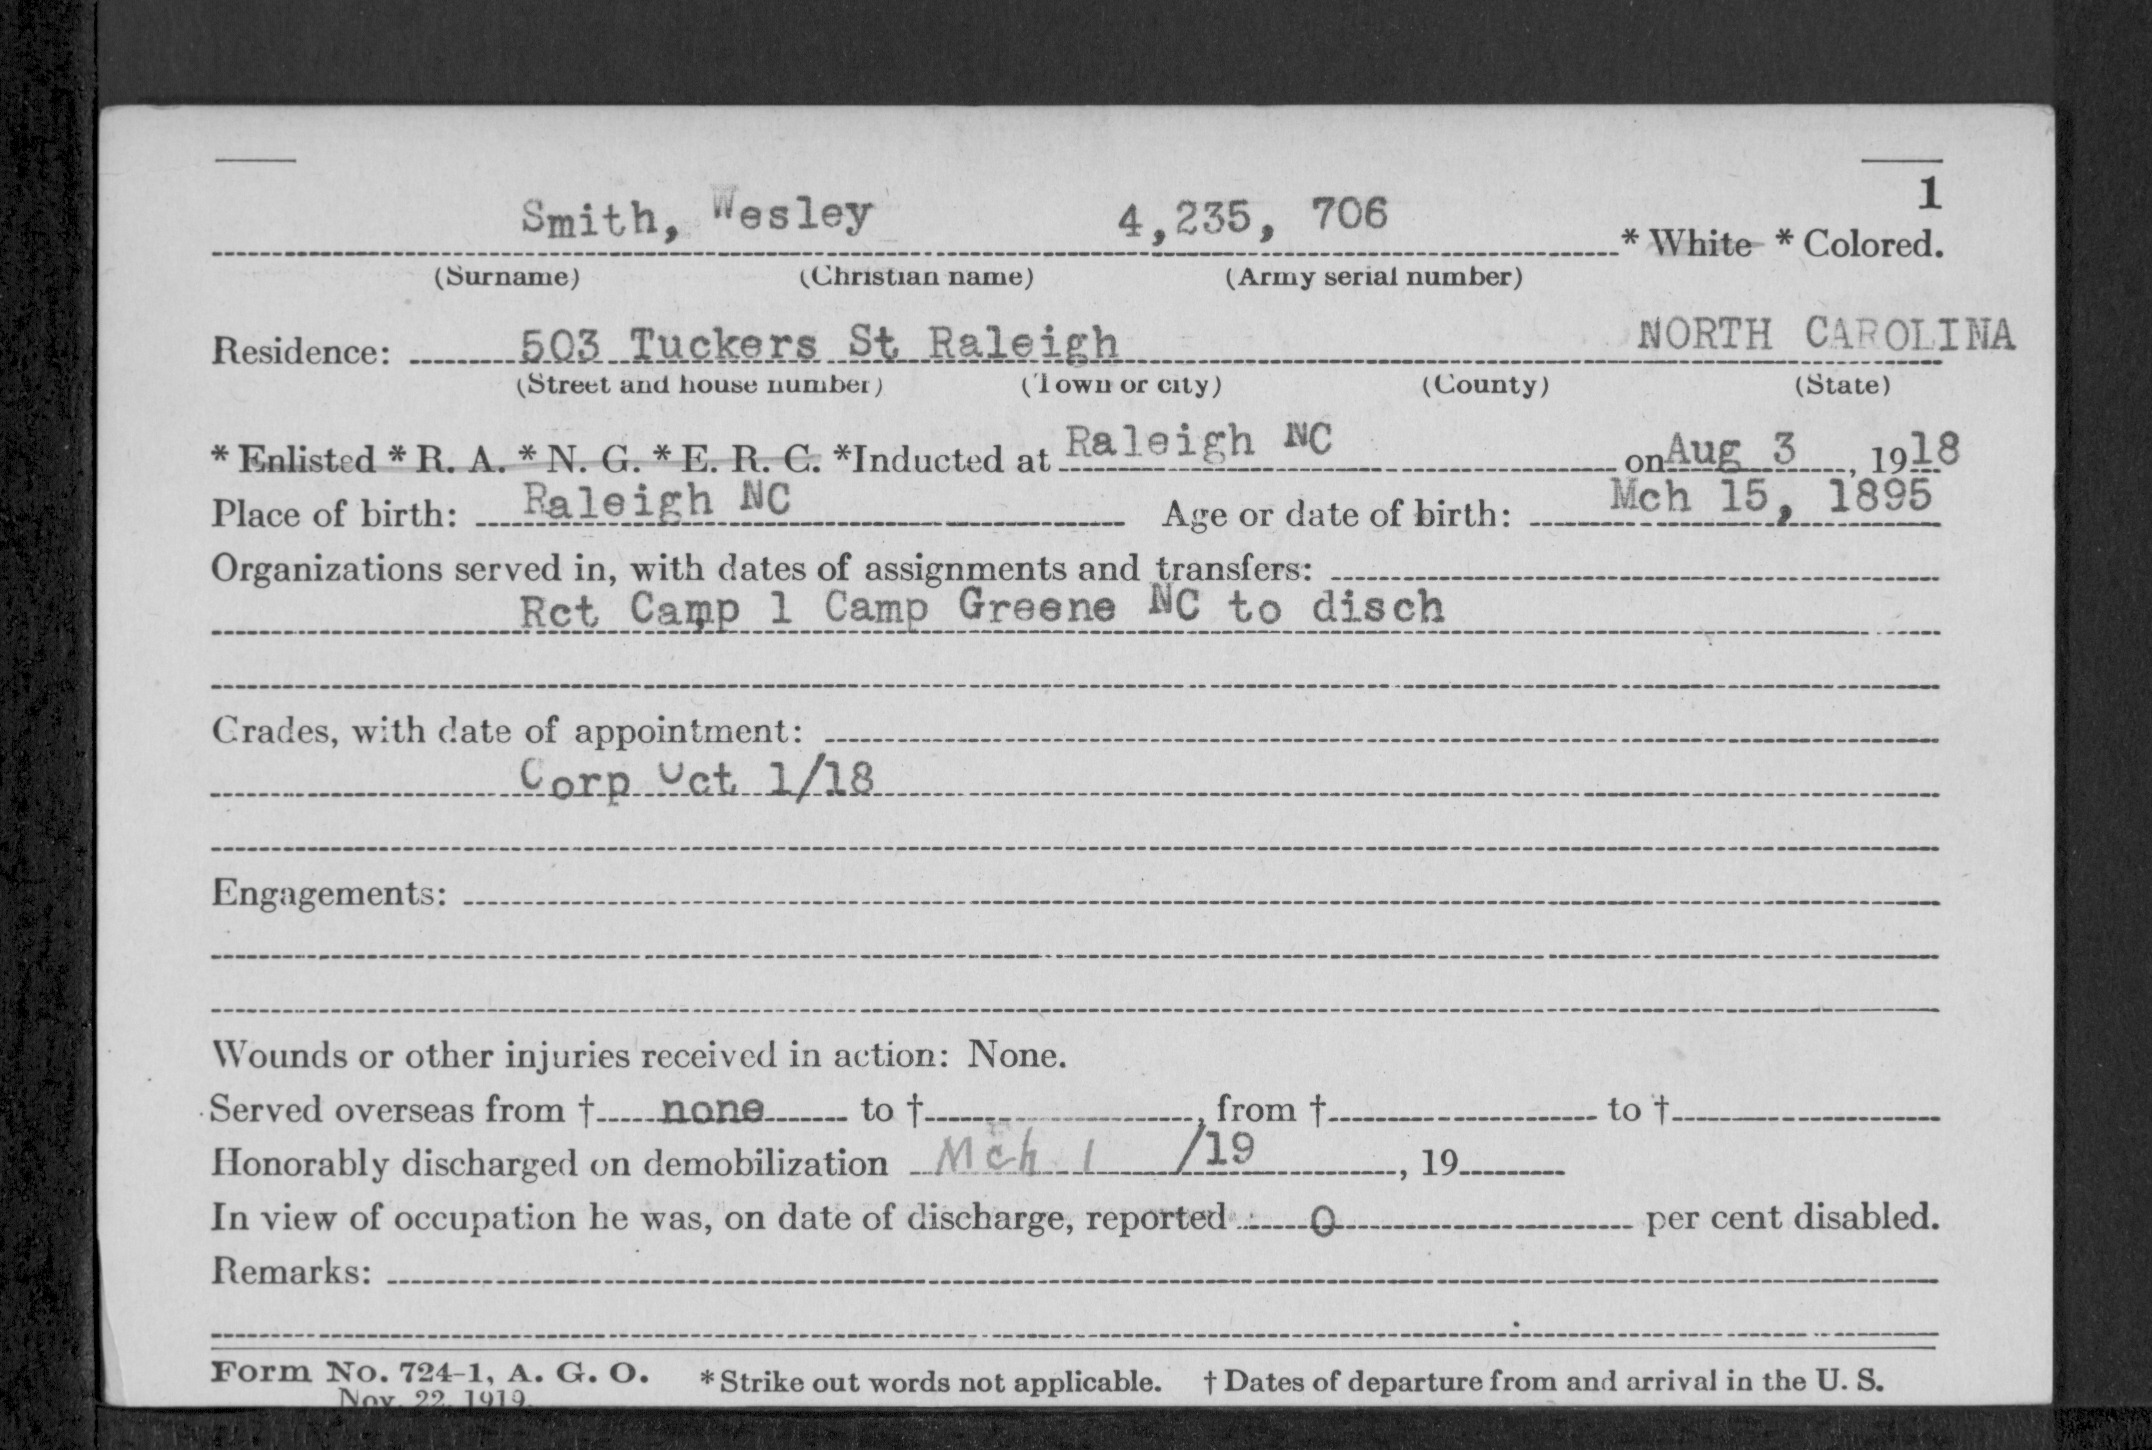 1
Smith, Wesley 4,235, 706 * White * Colored.
(Surname) (Christian name) (Army serial number)
Residence: 503 Tuckers St Raleigh NORTH CAROLINA
(Street and house number) (Town or city) (County) (State)
* Enlisted * R. A. * N. G. * E. R. C. *Inducted at Raleigh NC on Aug 3, 1918
Place of birth: Raleigh NC Age or date of birth: Mch 15, 1895
Organizations served in, with dates of assignments and transfers:
Rct Camp 1 Camp Greene NC to disch
Grades, with date of appointment:
Corp Oct 1/18
Engagements:
Wounds or other injuries received in action: None.
Served overseas from † none to †, from † to †
Honorably discharged on demobilization Mch 1 /19, 19
In view of occupation he was, on date of discharge, reported 0 per cent disabled.
Remarks:
Form No. 724-1, A. G. O. * Strike out words not applicable. † Dates of departure from and arrival in the U. S.
Nov. 22, 1919.